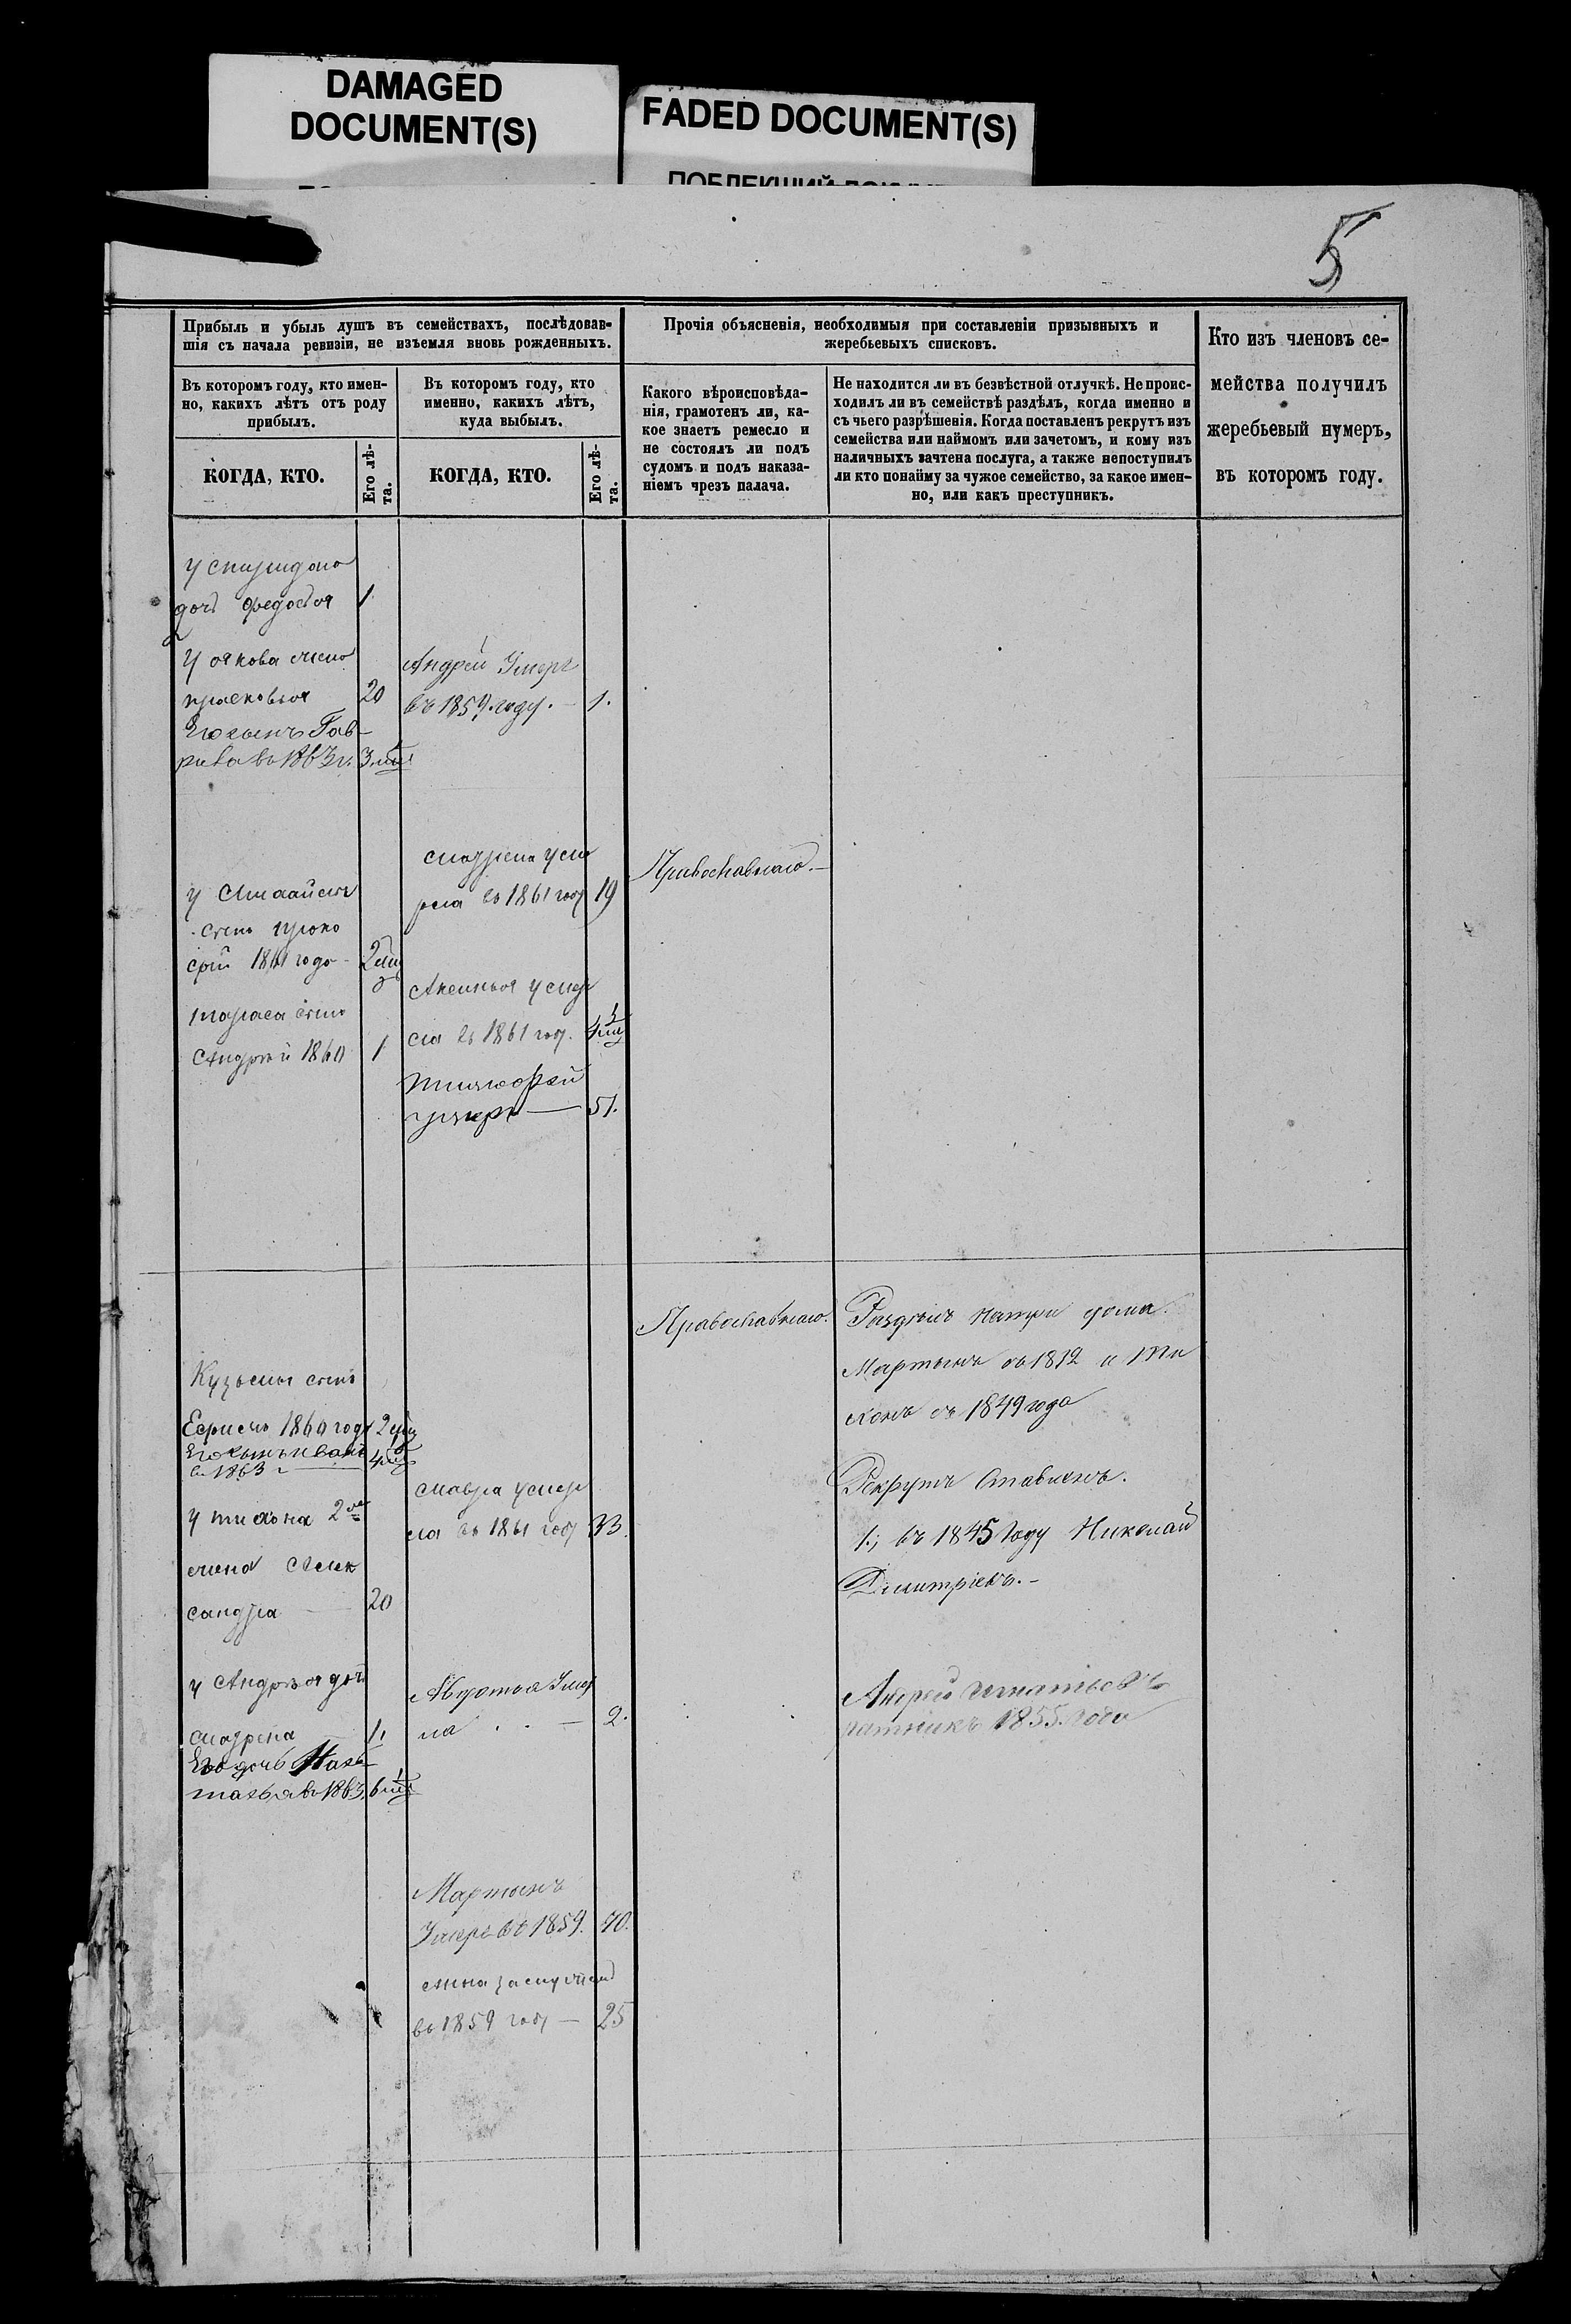 DAMAGED
DOCUMENT(S)
FADED DOCUMENT(S)
5
Прибыль и убыль душъ въ семействахъ, послѣдовав-
шія съ начала ревизіи, не изъемля вновь рожденныхъ.
Въ которомъ году, кто имен-
но, какихъ лѣтъ отъ роду
прибылъ.
КОГДА, КТО.
Его лѣ-
та.
Въ которомъ году, кто
именно, какихъ лѣтъ,
куда выбылъ.
КОГДА, КТО.
Его лѣ-
та.
Прочія объясненія, необходимыя при составленіи призывныхъ и
жеребьевыхъ списковъ.
Какого вѣроисповѣда-
нія, грамотенъ ли, ка-
кое знаетъ ремесло и
не состоялъ ли подъ
судомъ и подъ наказа-
ніемъ чрезъ палача.
Не находится ли въ безвѣстной отлучкѣ. Не проис-
ходилъ ли въ семействѣ раздѣлъ, когда именно и
съ чьего разрѣшенія. Когда поставленъ рекрутъ изъ
семейства или наймомъ или зачетомъ, и кому изъ
наличныхъ зачтена послуга, а также непоступилъ
ли кто понайму за чужое семейство, за какое имен-
но, или какъ преступникъ.
Кто изъ членовъ се-
мейства получилъ
жеребьевый нумеръ,
въ которомъ году.
у
дочь 1
у якова жена
прасковья 20
Его сынъ Гав-
рила въ 1863 г. 3
Андрей Умеръ
въ 1859 году. — 1.
у
сынъ проко
фій 1861 года 2
тараса сынъ
Андрей 1860 1
матрена уме
рла въ 1861 году 19
Аксинья умер
ла въ 1861 году. 4
тимофей
умеръ — 51.
Православнаго.—
Кузьмы сынъ
Ефимъ 1860 году 2
Его сынъ иванъ
в 1863 г — 4
у тихона 2
жена Алек
сандра — 20
у Андрея дочь
матрена 1.
Его дочь
въ 1863, 6
мавра умер
ла въ 1861 году 33.
Умер
ла . . — 2.
Мартынъ
Умеръ въ 1859. 70.
Анна
въ 1859 году — 25
Православнаго.
Мартынъ съ 1812 и Ти
хонъ съ 1849 года
Рекрутъ Ставленъ.
1.; въ 1845 году Николай
Димитріевъ.—
Андрей Игнатьевъ
ратникъ 1855 года